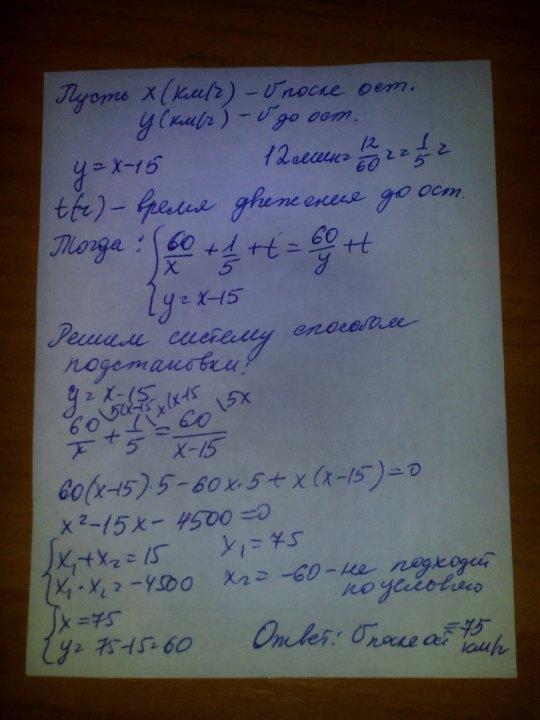 Пусть x(км/ч) – υ после ост.
y(км/ч) – υ до ост.
y = x–15 12 мин = 12/60 ч = 1/5 ч
t(ч) – время движения до ост.
Тогда: { 60/x + 1/5 + t = 60/y + t
y = x–15
Решим систему способом
подстановки:
y = x–15
60/x \5(x–15 + 1/5 \x(x–15 = 60/(x–15) \5x
60(x–15)·5 – 60x·5 + x(x–15) = 0
x² – 15x – 4500 = 0
{ x₁ + x₂ = 15 x₁ = 75
x₁ · x₂ = –4500 x₂ = –60 – не подходит
по условию
{ x = 75
y = 75–15 = 60 Ответ: υ после ост = 75
км/ч